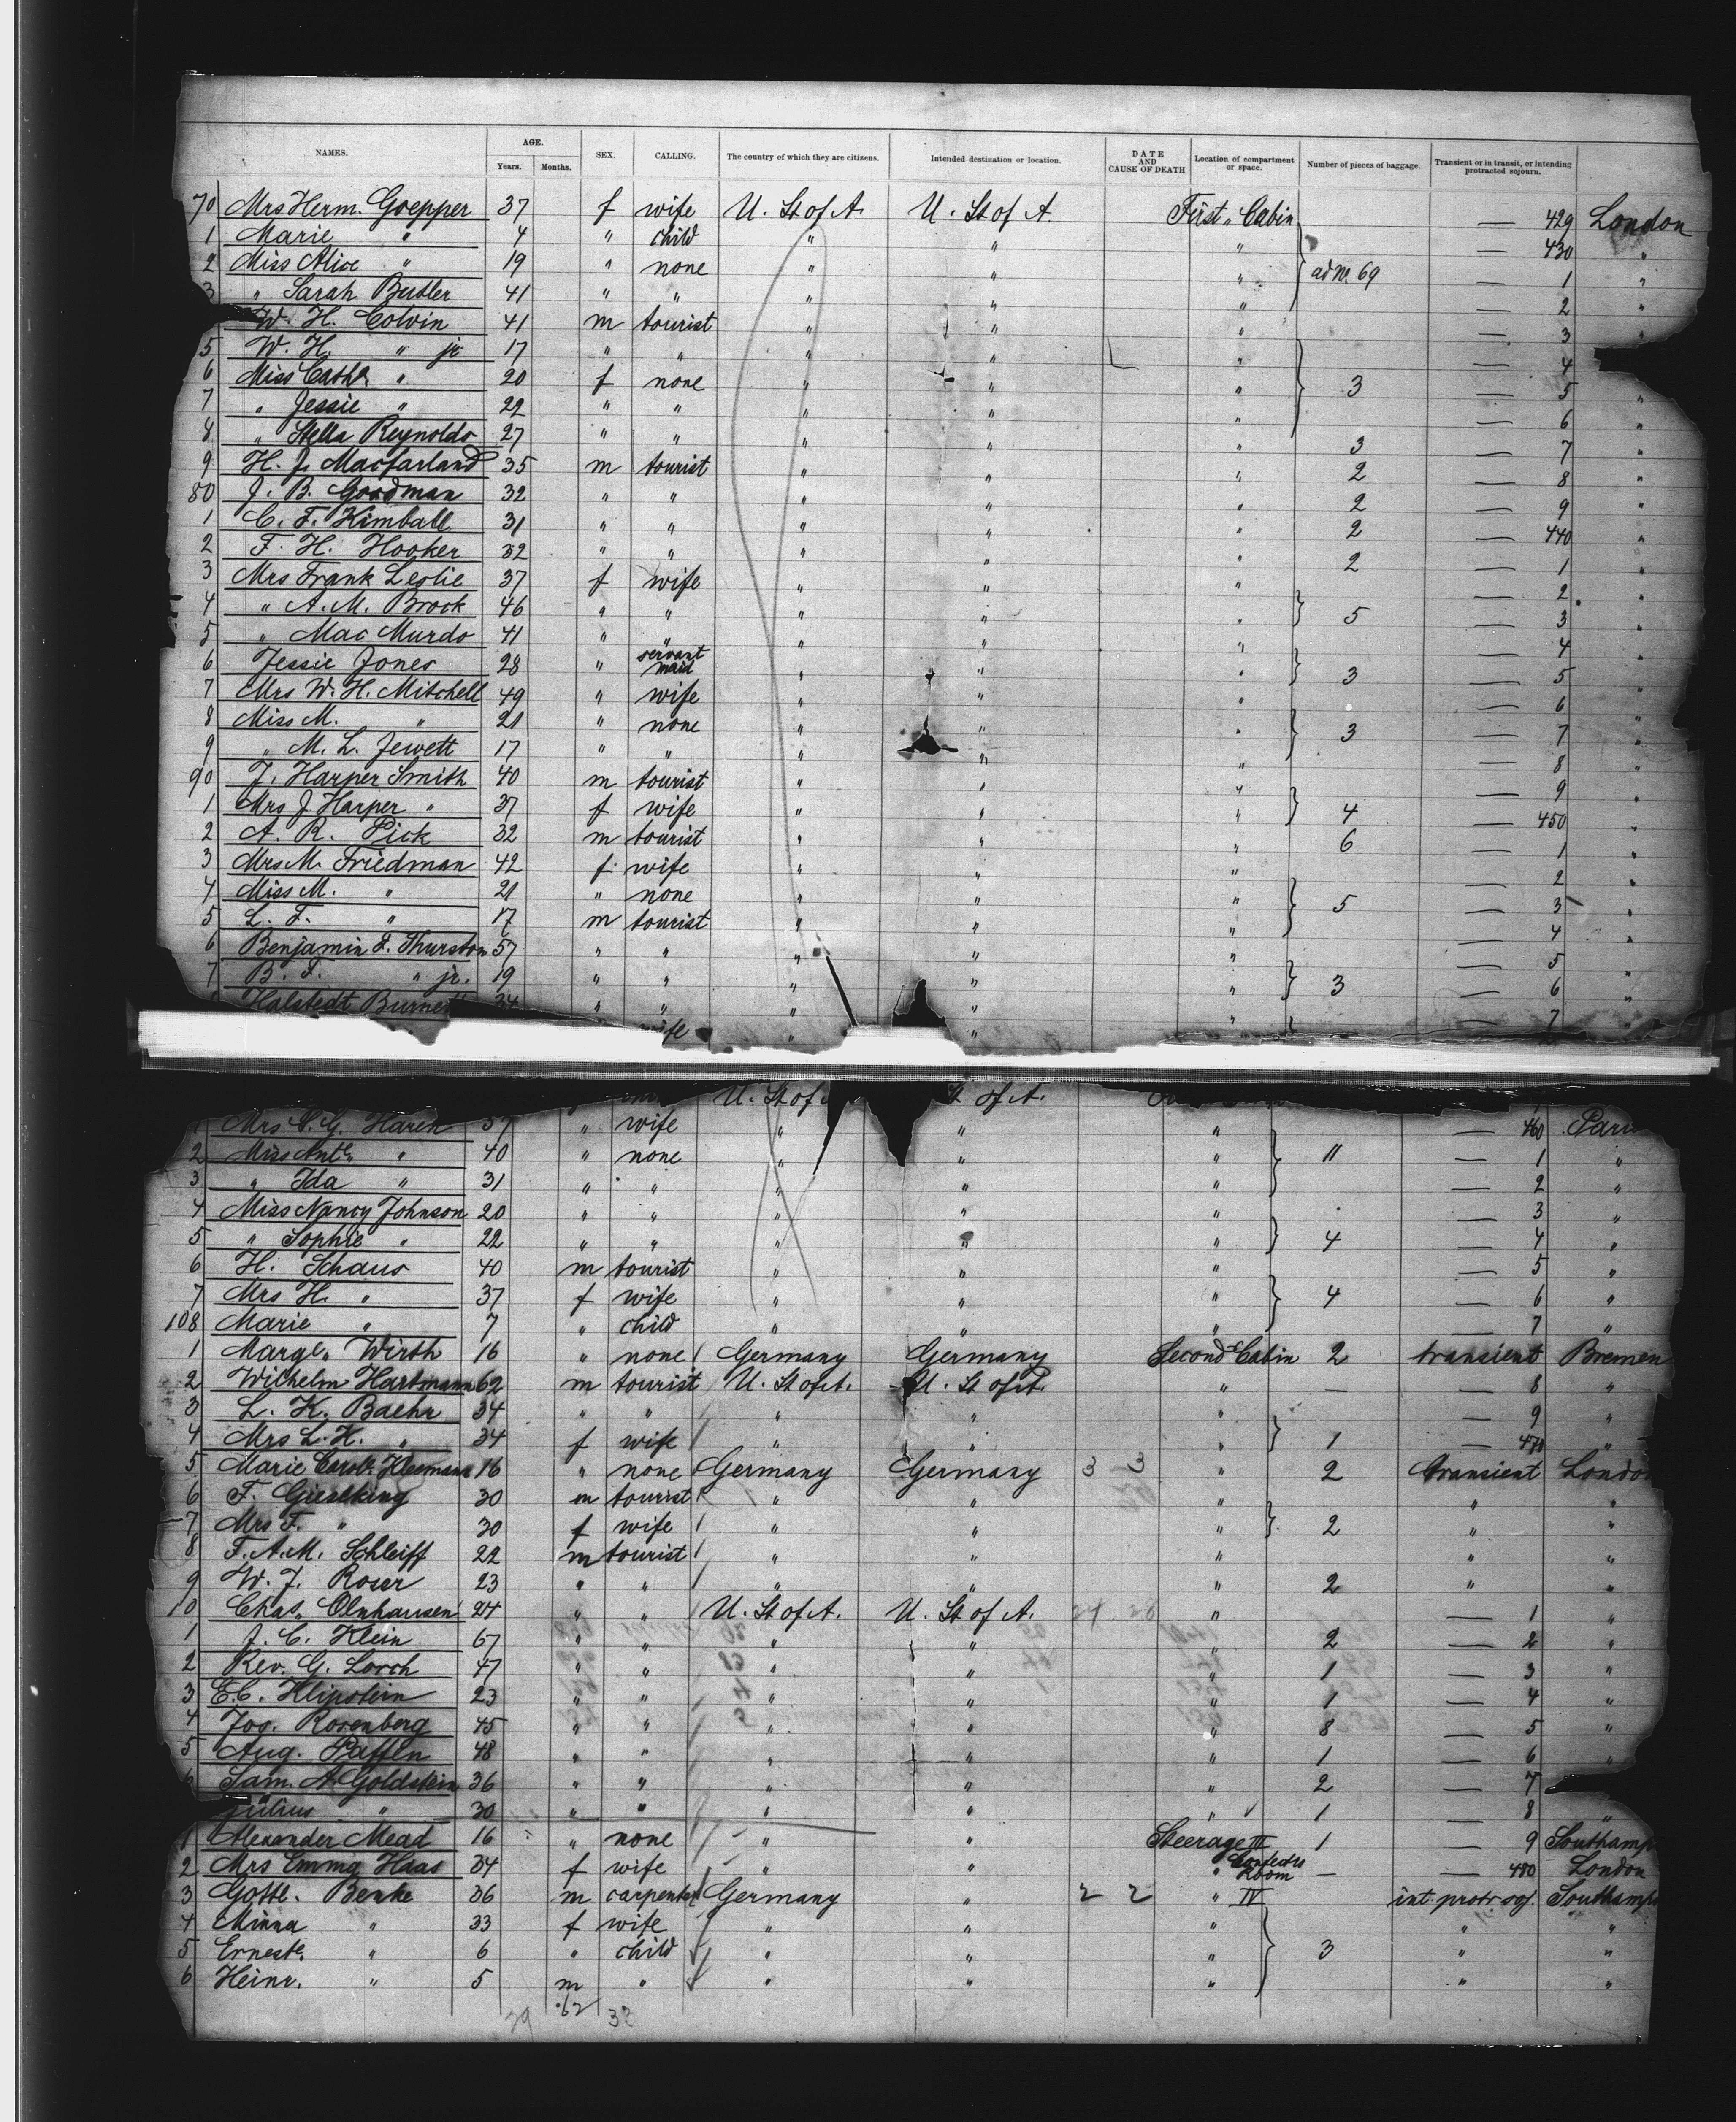 NAMES. AGE. SEX. CALLING. The country of which they are citizens. Intended destination or location. DATE AND CAUSE OF DEATH Location of compartment or space. Number of pieces of baggage. Transient or in transit, or intending protracted sojourn.
Years. Months.
70 Mrs Herm. Goepper 37 f wife U. St of A. U. St of A First Cabin — 429 London
1 Marie " 4 " child " " " — 430 "
2 Miss Alice " 19 " none " " " ad No. 69 — 1 "
3 " Sarah Butler 41 " " " " " — 2 "
W. H. Colvin 41 m tourist " " " — 3 "
5 W. H. " jr 17 " " " " " — 4
6 Miss Cathe. " 20 f none " " " 3 — 5 "
7 " Jessie " 22 " " " " " — 6 "
8 " Stella Reynolds 27 " " " " " 3 — 7 "
9 H. J. Macfarland 35 m tourist " " " 2 — 8 "
80 J. B. Goodman 32 " " " " " 2 — 9 "
1 C. F. Kimball 31 " " " " " 2 — 440 "
2 F. H. Hooker 32 " " " " " 2 — 1 "
3 Mrs Frank Leslie 37 f wife " " " — 2 "
4 " A. M. Brock 46 " " " " " 5 — 3 "
5 " Mac Murdo 41 " " " " " — 4 "
6 Jessie Jones 28 " servant maid " " " 3 — 5 "
7 Mrs W. H. Mitchell 49 " wife " " " — 6 "
8 Miss M. " 21 " none " " " 3 — 7 "
9 " M. L. Jewett 17 " " " " " — 8 "
90 J. Harper Smith 40 m tourist " " " — 9 "
1 Mrs J. Harper " 37 f wife " " " 4 — 450 "
2 A. R. Pick 32 m tourist " " " 6 — 1 "
3 Mrs M. Friedman 42 f wife " " " — 2 "
4 Miss M. " 21 " none " " " 5 — 3 "
5 L. F. " 17 m tourist " " " — 4 "
6 Benjamin F. Thurston 57 " " " " " — 5 "
7 B. F. " jr. 19 " " " " " 3 — 6 "
Halstedt 34 " " " " " — 7 "
wife " "
U. St of St of A.
Mrs C. G. " wife " " " — 460
2 Miss " 40 " none " " " 11 — 1 "
3 " Ida " 31 " " " " " — 2 "
4 Miss Nancy Johnson 20 " " " " " — 3 "
5 " Sophie " 22 " " " " " 4 — 4 "
6 H. Schaus 40 m tourist " " " — 5 "
7 Mrs H. " 37 f wife " " " 4 — 6 "
108 Marie " 7 " child " " " — 7 "
1 Marge. Wirth 16 " none Germany Germany Second Cabin 2 transient Bremen
2 Wilhelm Hartmann 62 m tourist U. St of A. U. St of A. " — — 8 "
3 L. K. Baehr 34 " " " " " — 9 "
4 Mrs L. K. " 34 f wife " " " 1 — 470 "
5 Marie Carol. Kleemann 16 " none Germany Germany 3 3 " 2 transient London
6 F. Gieseking 30 m tourist " " " " "
7 Mrs F. " 30 f wife " " " 2 " "
8 F. A. M. Schleiff 22 m tourist " " " " "
9 W. J. Roser 23 " " " " " 2 " "
10 Chas. Olnhausen 24 " " U. St of A. U. St of A. 24 28 " — 1 "
1 J. C. Klein 67 " " " " " 2 — 2 "
2 Rev. G. Lorch 47 " " " " " 1 — 3 "
3 E. C. Klipstein 23 " " " " " 1 — 4 "
4 Jos. Rosenberg 45 " " " " " 8 — 5 "
5 Aug. Paffen 48 " " " " " 1 — 6 "
6 Sam. A. Goldstein 36 " " " " " 2 — 7
Julius " 30 " " " " " 1 — 8 "
1 Alexander Mead 16 " none " " Steerage III 1 — 9 Southamp
2 Mrs Emma Haas 34 f wife " " " Room — — 480 London
3 Gottl. Benke 36 m carpenter Germany " 2 2 " IV int. protr. soj. Southampt
4 Minna " 33 f wife " " " " "
5 Erneste. " 6 " child " " " 3 " "
6 Heinr. " 5 m " " " " " "
29 62 33